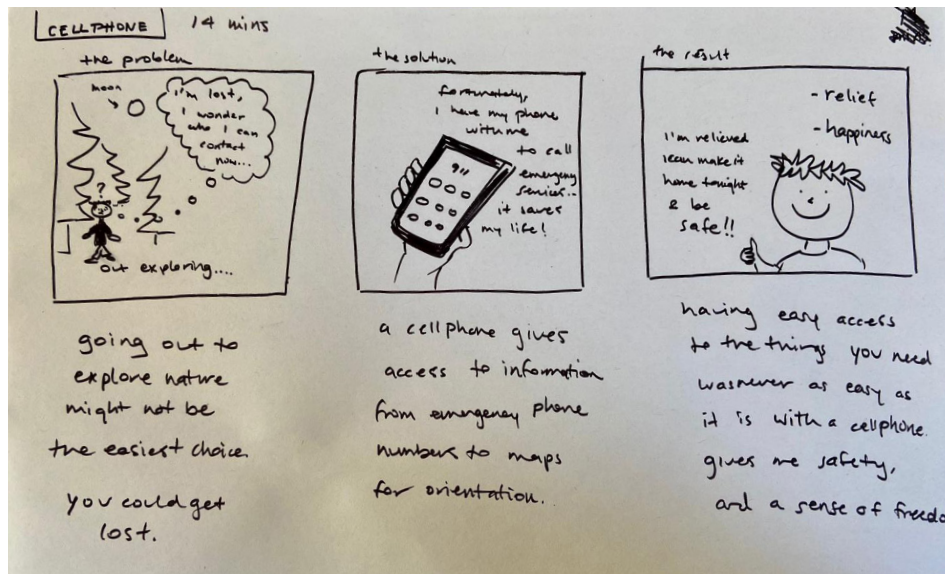 CELLPHONE 14 mins
the problem
moon
I'm lost,
I wonder
who I can
contact
now...
?
out exploring....
going out to
explore nature
might not be
the easiest choice.
you could get
lost.
the solution
fortunately,
I have my phone
with me
to call
emergency
services..
it saves
my life!
911
a cellphone gives
access to information
from emergency phone
numbers to maps
for orientation.
the result
- relief
- happiness
I'm relieved
I can make it
home tonight
& be
safe!!
having easy access
to the things you need
was never as easy as
it is with a cellphone.
gives me safety,
and a sense of freedo